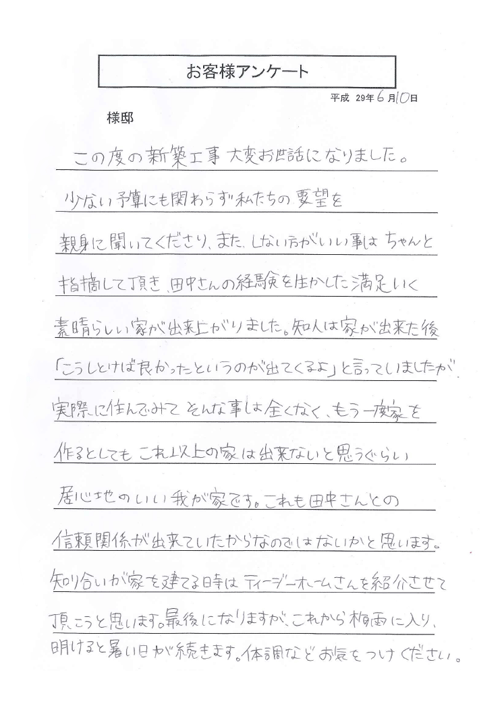 お客様アンケート
平成 29年6月10日
様邸
この度の新築工事大変お世話になりました。
少ない予算にも関わらず私たちの要望を
親身に聞いてくださり、また、しない方がいい事はちゃんと
指摘して頂き、田中さんの経験を生かした満足いく
素晴らしい家が出来上がりました。知人は家が出来た後
「こうしとけば良かったというのが出てくるよ」と言っていましたが、
実際に住んでみてそんな事は全くなく、もう一度家を
作るとしてもこれ以上の家は出来ないと思うぐらい
居心地のいい我が家です。これも田中さんとの
信頼関係が出来ていたからなのではないかと思います。
知り合いが家を建てる時はティージーホームさんを紹介させて
頂こうと思います。最後になりますが、これから梅雨に入り、
明けると暑い日が続きます。体調などお気をつけください。